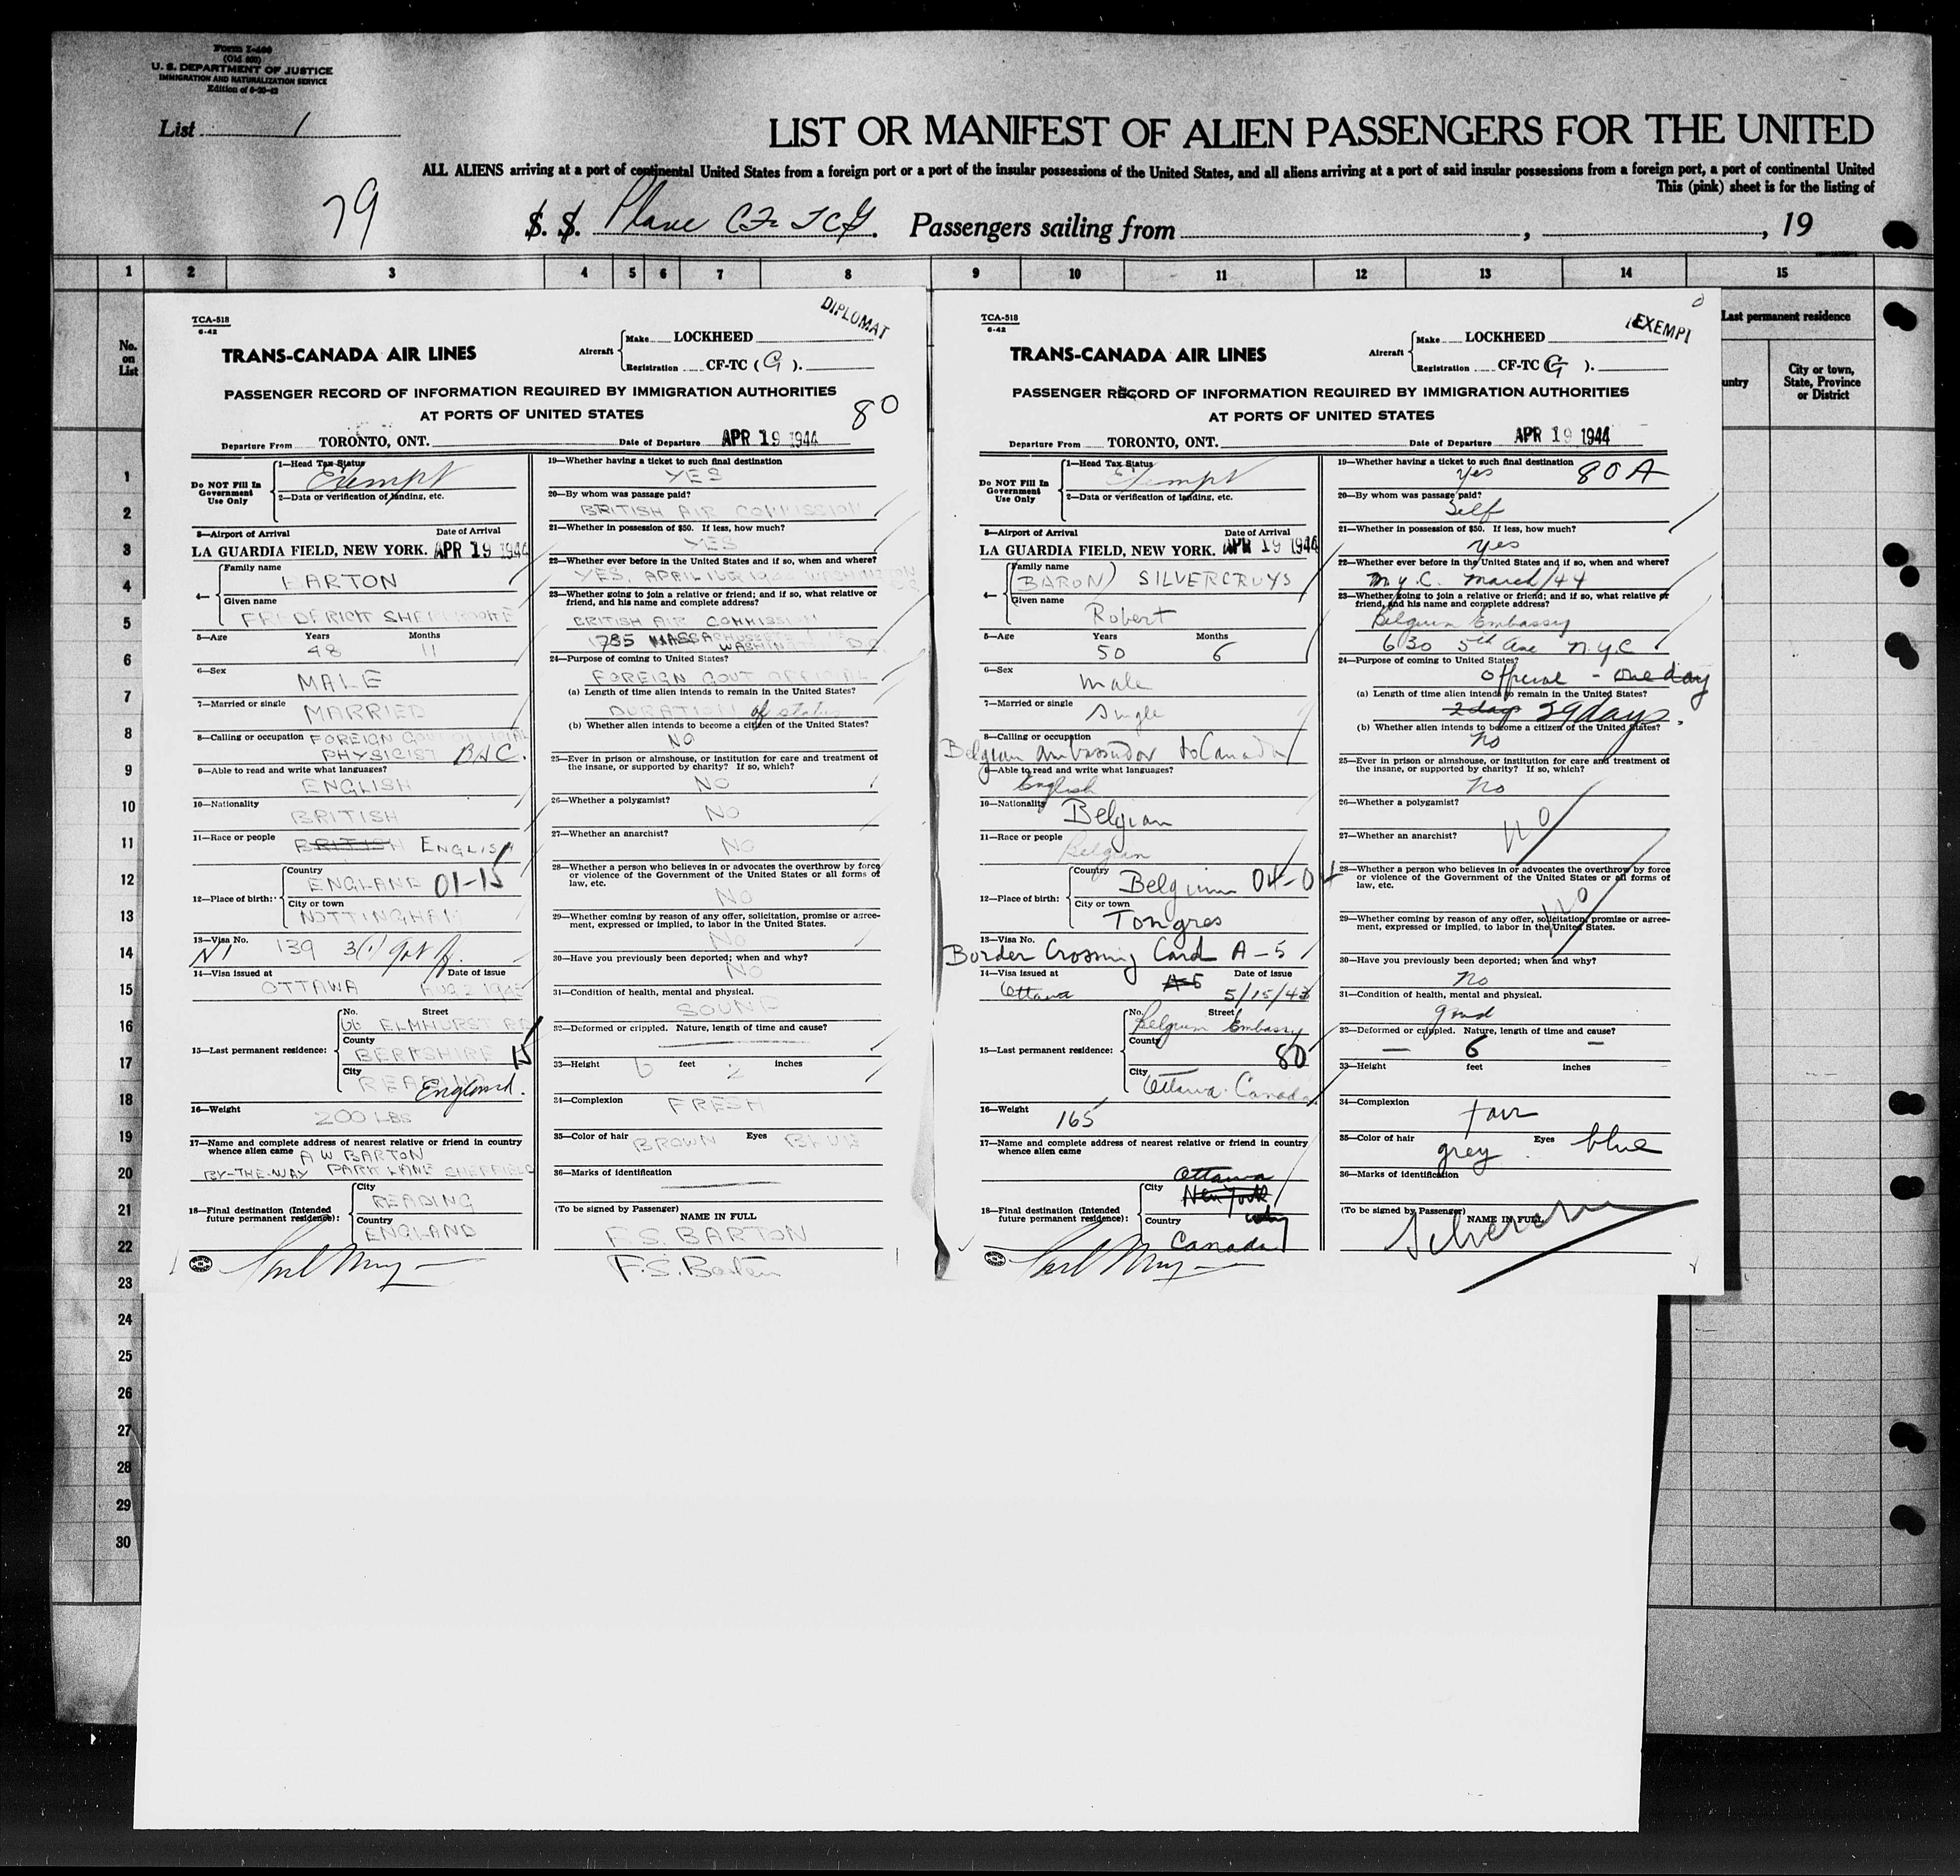 Form I-400
(Old 500)
U. S. DEPARTMENT OF JUSTICE
IMMIGRATION AND NATURALIZATION SERVICE
List 1
LIST OR MANIFEST OF ALIEN PASSENGERS FOR THE UNITED
ALL ALIENS arriving at a port of continental United States from a foreign port or a port of the insular possessions of the United States, and all aliens arriving at a port of said insular possessions from a foreign port, a port of continental United
This (pink) sheet is for the listing of
79
S. S. Plane CF-TCG. Passengers sailing from , , 19
1 2 3 4 5 6 7 8 9 10 11 12 13 14 15
No.
on
List
Last permanent residence
untry
City or town,
State, Province
or District
1
2
3
4
5
6
7
8
9
10
11
12
13
14
15
16
17
18
19
20
21
22
23
24
25
26
27
28
29
30
TCA-518
6-42
DIPLOMAT
TRANS-CANADA AIR LINES
Aircraft
Make LOCKHEED
Registration CF-TC ( G ).
PASSENGER RECORD OF INFORMATION REQUIRED BY IMMIGRATION AUTHORITIES
AT PORTS OF UNITED STATES
80
Departure From TORONTO, ONT. Date of Departure APR 19 1944
Do NOT Fill In
Government
Use Only
1—Head Tax Status
Exempt
2—Data or verification of landing, etc.
3—Airport of Arrival Date of Arrival
LA GUARDIA FIELD, NEW YORK. APR 19 1944
4—
Family name
BARTON
Given name
FREDERICK
5—Age Years Months
48 11
6—Sex
MALE
7—Married or single
MARRIED
8—Calling or occupation FOREIGN
PHYSICIST BAC.
9—Able to read and write what languages?
ENGLISH
10—Nationality
BRITISH
11—Race or people BRITISH ENGLISH
12—Place of birth:
Country
ENGLAND 01-15
City or town
NOTTINGHAM
13—Visa No.
139 3(1)
14—Visa issued at Date of issue
OTTAWA AUG 2
15—Last permanent residence:
No. Street
66 ELMHURST RD
County
BERKSHIRE 15
City
READING England.
16—Weight
200 LBS
17—Name and complete address of nearest relative or friend in country
whence alien came A W BARTON
BY-THE-WAY PARK LANE SHEFFIELD
18—Final destination (Intended
future permanent residence):
City
READING
Country
ENGLAND
19—Whether having a ticket to such final destination
YES
20—By whom was passage paid?
BRITISH AIR COMMISSION
21—Whether in possession of $50. If less, how much?
YES
22—Whether ever before in the United States and if so, when and where?
YES, APRIL WASHINGTON
23—Whether going to join a relative or friend; and if so, what relative or
friend, and his name and complete address?
BRITISH AIR COMMISSION
1785 MASSACHUSETTS
WASHINGTON D.C.
24—Purpose of coming to United States?
FOREIGN GOVT OFFICIAL
(a) Length of time alien intends to remain in the United States?
DURATION of status
(b) Whether alien intends to become a citizen of the United States?
NO
25—Ever in prison or almshouse, or institution for care and treatment of
the insane, or supported by charity? If so, which?
NO
26—Whether a polygamist?
NO
27—Whether an anarchist?
NO
28—Whether a person who believes in or advocates the overthrow by force
or violence of the Government of the United States or all forms of
law, etc.
NO
29—Whether coming by reason of any offer, solicitation, promise or agree-
ment, expressed or implied, to labor in the United States.
NO
30—Have you previously been deported; when and why?
NO
31—Condition of health, mental and physical.
SOUND
32—Deformed or crippled. Nature, length of time and cause?
33—Height 6 feet 2 inches
34—Complexion FRESH
35—Color of hair BROWN Eyes BLUE
36—Marks of identification
(To be signed by Passenger)
NAME IN FULL
F.S. BARTON
F.S. Barton
TCA-518
6-42
EXEMPT
TRANS-CANADA AIR LINES
Aircraft
Make LOCKHEED
Registration CF-TC ( G ).
PASSENGER RECORD OF INFORMATION REQUIRED BY IMMIGRATION AUTHORITIES
AT PORTS OF UNITED STATES
Departure From TORONTO, ONT. Date of Departure APR 19 1944
Do NOT Fill In
Government
Use Only
1—Head Tax Status
Exempt
2—Data or verification of landing, etc.
3—Airport of Arrival Date of Arrival
LA GUARDIA FIELD, NEW YORK. APR 19 1944
4—
Family name
(BARON) SILVERCRUYS
Given name
Robert
5—Age Years Months
50 6
6—Sex
Male
7—Married or single
Single
8—Calling or occupation
Belgian Ambassador to Canada
9—Able to read and write what languages?
English
10—Nationality
Belgian
11—Race or people
Belgian
12—Place of birth:
Country
Belgium 04-04
City or town
Tongres
13—Visa No.
Border Crossing Card A-5
14—Visa issued at Date of issue
Ottawa A-5 5/15/43
15—Last permanent residence:
No. Street
Belgium Embassy
County
80
City
Ottawa Canada
16—Weight
165
17—Name and complete address of nearest relative or friend in country
whence alien came
18—Final destination (Intended
future permanent residence):
City
Ottawa
New York
City
Country
Canada
19—Whether having a ticket to such final destination
Yes 80A
20—By whom was passage paid?
Self
21—Whether in possession of $50. If less, how much?
Yes
22—Whether ever before in the United States and if so, when and where?
N.Y.C. March/44
23—Whether going to join a relative or friend; and if so, what relative or
friend, and his name and complete address?
Belgium Embassy
630 5th Ave N.Y.C
24—Purpose of coming to United States?
Official - One day
(a) Length of time alien intends to remain in the United States?
2 days 29 days.
(b) Whether alien intends to become a citizen of the United States?
No
25—Ever in prison or almshouse, or institution for care and treatment of
the insane, or supported by charity? If so, which?
No
26—Whether a polygamist?
27—Whether an anarchist?
No
28—Whether a person who believes in or advocates the overthrow by force
or violence of the Government of the United States or all forms of
law, etc.
No
29—Whether coming by reason of any offer, solicitation, promise or agree-
ment, expressed or implied, to labor in the United States.
30—Have you previously been deported; when and why?
No
31—Condition of health, mental and physical.
good
32—Deformed or crippled. Nature, length of time and cause?
33—Height 6 feet — inches
34—Complexion
Fair
35—Color of hair grey Eyes blue
36—Marks of identification
(To be signed by Passenger)
NAME IN FULL